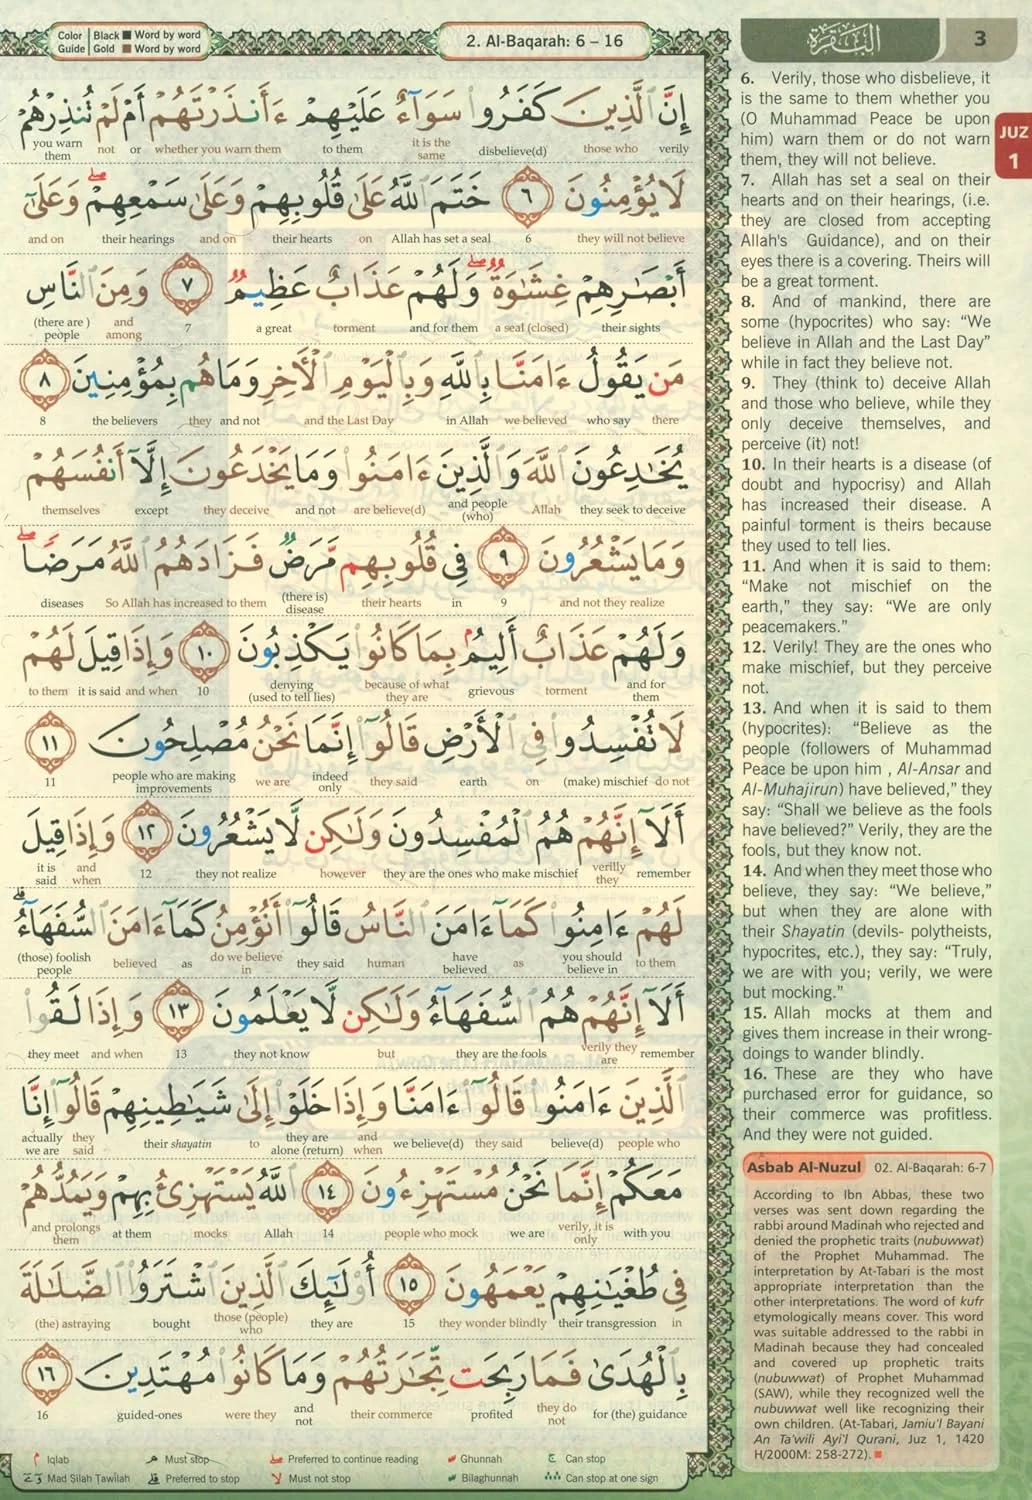 Color Guide
Black ■ Word by word
Gold ■ Word by word
2. Al-Baqarah: 6 – 16
البقرة
3
JUZ 1
إِنَّ ٱلَّذِينَ كَفَرُوا۟ سَوَآءٌ عَلَيْهِمْ ءَأَنذَرْتَهُمْ أَمْ لَمْ تُنذِرْهُمْ
verily those who disbelieve(d) it is the same to them whether you warn them or not you warn them
لَا يُؤْمِنُونَ ٦ خَتَمَ ٱللَّهُ عَلَىٰ قُلُوبِهِمْ وَعَلَىٰ سَمْعِهِمْ ۖ وَعَلَىٰٓ
they will not believe 6 Allah has set a seal on their hearts and on their hearings and on
أَبْصَـٰرِهِمْ غِشَـٰوَةٌ ۖ وَلَهُمْ عَذَابٌ عَظِيمٌ ٧ وَمِنَ ٱلنَّاسِ
their sights a seal (closed) and for them torment a great 7 and among (there are ) people
مَن يَقُولُ ءَامَنَّا بِٱللَّهِ وَبِٱلْيَوْمِ ٱلْـَٔاخِرِ وَمَا هُم بِمُؤْمِنِينَ ٨
there who say we believed in Allah and the Last Day and not they the believers 8
يُخَـٰدِعُونَ ٱللَّهَ وَٱلَّذِينَ ءَامَنُوا۟ وَمَا يَخْدَعُونَ إِلَّآ أَنفُسَهُمْ
they seek to deceive Allah and people (who) are believe(d) and not they deceive except themselves
وَمَا يَشْعُرُونَ ٩ فِى قُلُوبِهِم مَّرَضٌ فَزَادَهُمُ ٱللَّهُ مَرَضًا ۖ
and not they realize 9 in their hearts (there is) disease So Allah has increased to them diseases
وَلَهُمْ عَذَابٌ أَلِيمٌۢ بِمَا كَانُوا۟ يَكْذِبُونَ ١٠ وَإِذَا قِيلَ لَهُمْ
and for them torment grievous because of what they are denying (used to tell lies) 10 and when it is said to them
لَا تُفْسِدُوا۟ فِى ٱلْأَرْضِ قَالُوٓا۟ إِنَّمَا نَحْنُ مُصْلِحُونَ ١١
do not (make) mischief on earth they said indeed only we are people who are making improvements 11
أَلَآ إِنَّهُمْ هُمُ ٱلْمُفْسِدُونَ وَلَـٰكِن لَّا يَشْعُرُونَ ١٢ وَإِذَا قِيلَ
remember verilly they they are the ones who make mischief however they not realize 12 and when it is said
لَهُمْ ءَامِنُوا۟ كَمَآ ءَامَنَ ٱلنَّاسُ قَالُوٓا۟ أَنُؤْمِنُ كَمَآ ءَامَنَ ٱلسُّفَهَآءُ ۗ
to them you should believe in as have believed human they said do we believe in as believed (those) foolish people
أَلَآ إِنَّهُمْ هُمُ ٱلسُّفَهَآءُ وَلَـٰكِن لَّا يَعْلَمُونَ ١٣ وَإِذَا لَقُوا۟
remember verily they are they are the fools but they not know 13 and when they meet
ٱلَّذِينَ ءَامَنُوا۟ قَالُوٓا۟ ءَامَنَّا وَإِذَا خَلَوْا۟ إِلَىٰ شَيَـٰطِينِهِمْ قَالُوٓا۟ إِنَّا
people who believe(d) they said we believe(d) and when they are alone (return) to their shayatin they said actually we are
مَعَكُمْ إِنَّمَا نَحْنُ مُسْتَهْزِءُونَ ١٤ ٱللَّهُ يَسْتَهْزِئُ بِهِمْ وَيَمُدُّهُمْ
with you verily, it is only we are people who mock 14 Allah mocks at them and prolongs them
فِى طُغْيَـٰنِهِمْ يَعْمَهُونَ ١٥ أُو۟لَـٰٓئِكَ ٱلَّذِينَ ٱشْتَرَوُا۟ ٱلضَّلَـٰلَةَ
in their transgression they wonder blindly 15 they are those (people) who bought (the) astraying
بِٱلْهُدَىٰ فَمَا رَبِحَت تِّجَـٰرَتُهُمْ وَمَا كَانُوا۟ مُهْتَدِينَ ١٦
for (the) guidance they do not profited their commerce and not were they guided-ones 16
Iqlab
Must stop
Preferred to continue reading
Ghunnah
Can stop
Mad Silah Tawilah
Preferred to stop
Must not stop
Bilaghunnah
Can stop at one sign
6. Verily, those who disbelieve, it
is the same to them whether you
(O Muhammad Peace be upon
him) warn them or do not warn
them, they will not believe.
7. Allah has set a seal on their
hearts and on their hearings, (i.e.
they are closed from accepting
Allah's Guidance), and on their
eyes there is a covering. Theirs will
be a great torment.
8. And of mankind, there are
some (hypocrites) who say: “We
believe in Allah and the Last Day”
while in fact they believe not.
9. They (think to) deceive Allah
and those who believe, while they
only deceive themselves, and
perceive (it) not!
10. In their hearts is a disease (of
doubt and hypocrisy) and Allah
has increased their disease. A
painful torment is theirs because
they used to tell lies.
11. And when it is said to them:
“Make not mischief on the
earth,” they say: “We are only
peacemakers.”
12. Verily! They are the ones who
make mischief, but they perceive
not.
13. And when it is said to them
(hypocrites): “Believe as the
people (followers of Muhammad
Peace be upon him , Al-Ansar and
Al-Muhajirun) have believed,” they
say: “Shall we believe as the fools
have believed?” Verily, they are the
fools, but they know not.
14. And when they meet those who
believe, they say: “We believe,”
but when they are alone with
their Shayatin (devils- polytheists,
hypocrites, etc.), they say: “Truly,
we are with you; verily, we were
but mocking.”
15. Allah mocks at them and
gives them increase in their wrong-
doings to wander blindly.
16. These are they who have
purchased error for guidance, so
their commerce was profitless.
And they were not guided.
Asbab Al-Nuzul 02. Al-Baqarah: 6-7
According to Ibn Abbas, these two
verses was sent down regarding the
rabbi around Madinah who rejected and
denied the prophetic traits (nubuwwat)
of the Prophet Muhammad. The
interpretation by At-Tabari is the most
appropriate interpretation than the
other interpretations. The word of kufr
etymologically means cover. This word
was suitable addressed to the rabbi in
Madinah because they had concealed
and covered up prophetic traits
(nubuwwat) of Prophet Muhammad
(SAW), while they recognized well the
nubuwwat well like recognizing their
own children. (At-Tabari, Jamiu'l Bayani
An Ta'wili Ayi'l Qurani, Juz 1, 1420
H/2000M: 258-272).